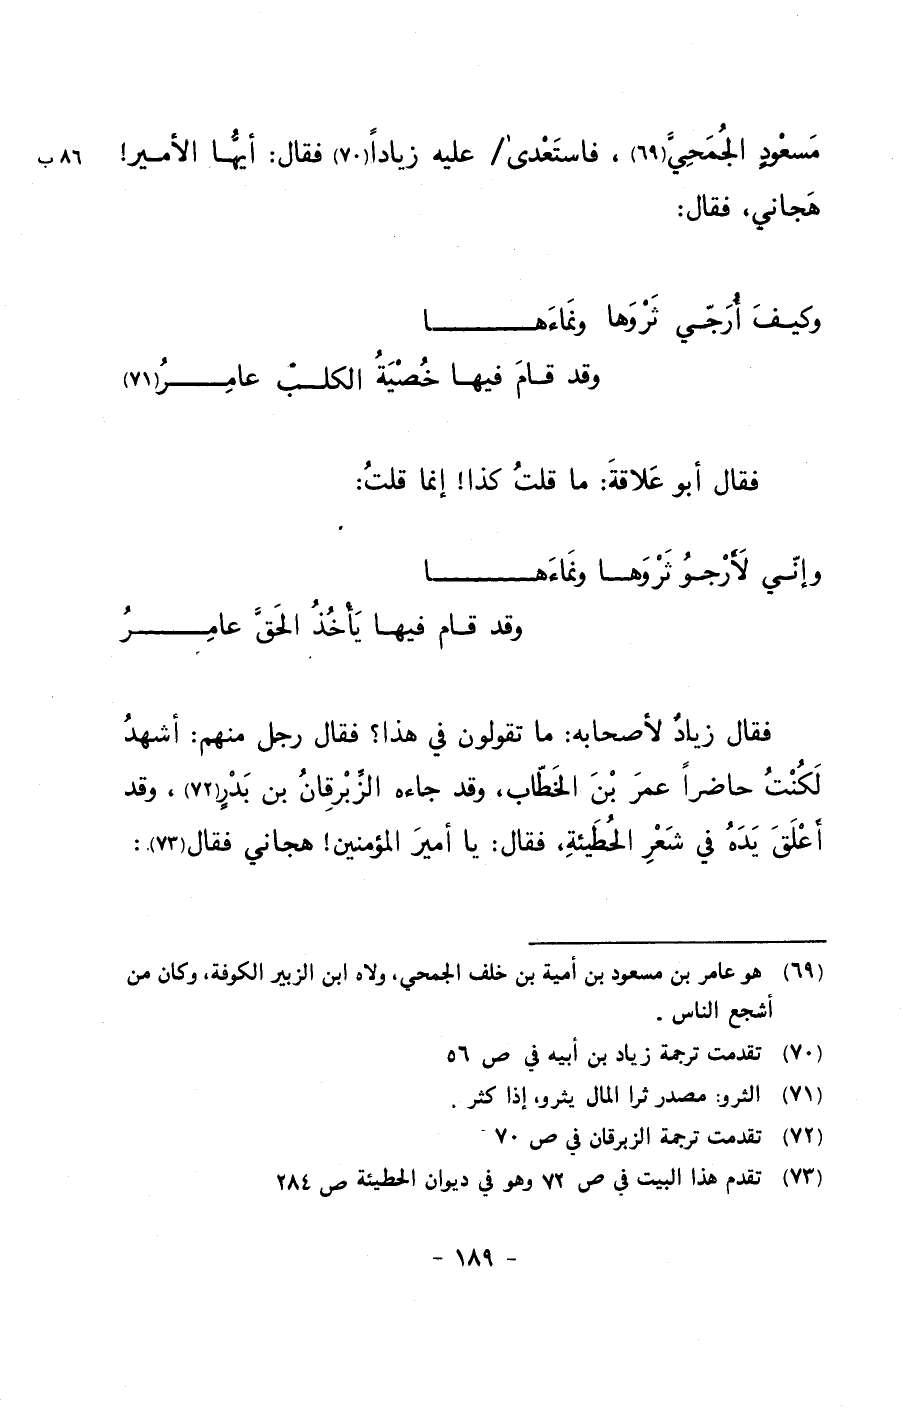 مَسعْودٍ الجُمَحِيَّ(٦٩) ، فاستَعْدىٰ/ عليه زياداً(٧٠) فقال: أيهُّا الأمير! ٨٦ ب
هَجاني، فقال:
وكيفَ أُرَجّي ثَرْوَها ونَماءَها
وقد قامَ فيها خُصْيَةُ الكلبْ عامِرُ(٧١)
فقال أبو عَلاقةَ: ما قلتُ كذا! إنما قلتُ:
وإنّي لَأَرْجوُ ثَرْوَها ونَماءَها
وقد قام فيها يَأْخُذُ الحَقَّ عامِرُ
فقال زيادٌ لأصحابه: ما تقولون في هذا؟ فقال رجل منهم: أشهدُ
لَكُنْتُ حاضراً عمرَ بْنَ الخَطّاب، وقد جاءه الزِّبْرِقانُ بن بَدْرٍ(٧٢) ، وقد
أَعْلَقَ يَدَهُ في شَعْرِ الحُطَيئةِ، فقال: يا أميرَ المؤمنين! هجاني فقال(٧٣). :
(٦٩) هو عامر بن مسعود بن أمية بن خلف الجمحي، ولاه ابن الزبير الكوفة، وكان من
أشجع الناس .
(٧٠) تقدمت ترجمة زياد بن أبيه في ص ٥٦
(٧١) الثرو: مصدر ثرا المال يثرو، إذا كثر .
(٧٢) تقدمت ترجمة الزبرقان في ص ٧٠
(٧٣) تقدم هذا البيت في ص ٧٢ وهو في ديوان الحطيئة ص ٢٨٤
- ١٨٩ -